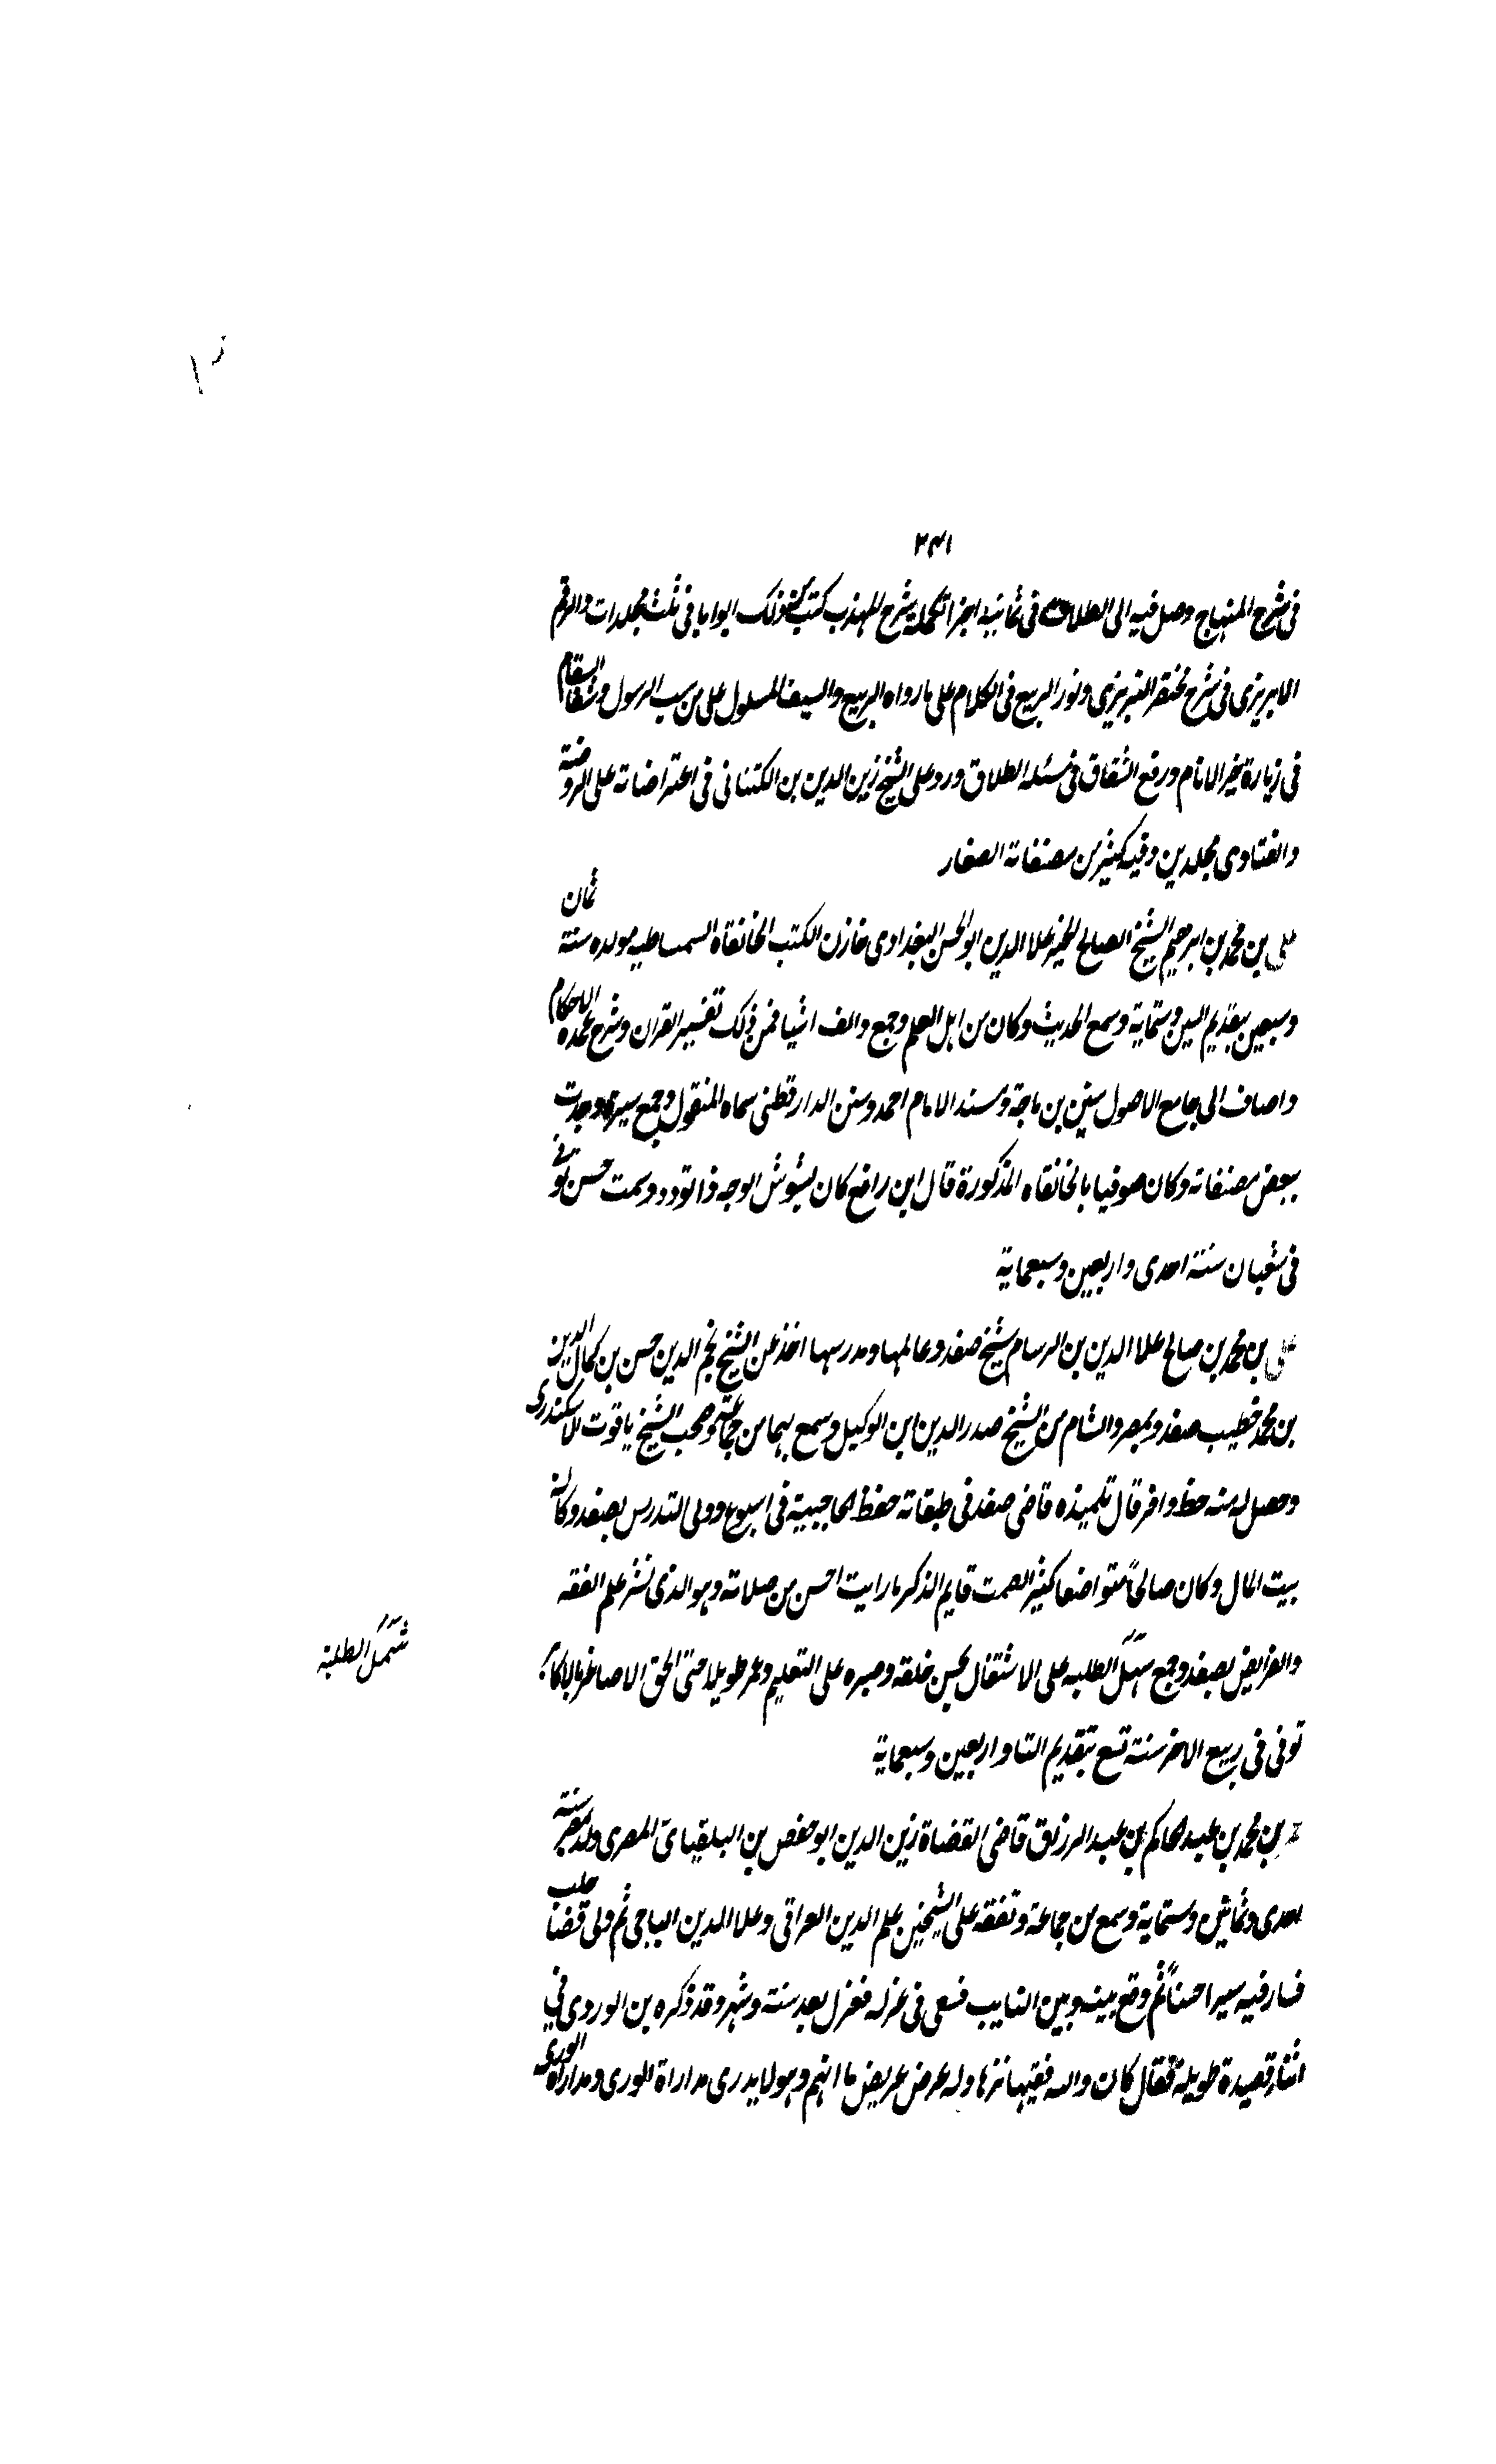 ٢٣١
فى شرح المنهاج وصل فيه الى الطلاق فى ثمانية اجزا تكملة شرح المهذب كتب من ذلك ابوابا فى ثلث مجلدات والرقم
الابريزى فى شرح مختصر التبريزى ونور الربيع فى الكلام على ما رواه الربيع والسيف المسلول على من سب الرسول وشفا السقام
فى زيارة خير الانام ورفع الشقاق فى مسئلة الطلاق ورد على الشيخ زين الدين بن الكتنانى فى اعتراضاته على الروضة
والفتاوى مجلدين وفيه كثير من مصنفاته الصغار
على بن محمد بن ابرهيم الشيخ الصالح الخير علا الدين ابو الحسن البغدادى خازن الكتب الخانقاه السمساطيه مولده سنة ثمان
وسبعين بتقديم السين وستماية وسمع الحديث وكان من اهل العلم وجمع والف اشيا فمن ذلك تفسير القران وشرح عمدة الاحكام
واضاف الى جامع الاصول سنن بن ماجة ومسند الامام احمد وسنن الدارقطنى سماه المنقول وجمع سيرة وحدث
ببعض مصنفاته وكان صوفيا بالخانقاه المذكورة قال ابن رافع كان بشوش الوجه ذا تودد وسمت حسن توفى
فى شعبان سنة احدى واربعين وسبعماية
على بن محمد بن صالح علا الدين بن الرسام شيخ صفد وعالمها ومدرسها اخذ عن الشيخ نجم الدين حسن بن كمال الدين
بن محمد خطيب صفد وبمصر والشام من الشيخ صدر الدين ابن الوكيل وسمع بهما من جماعة وصحب الشيخ ياقوت الاسكندرى
وحصل له منه حظ وافر قال تلميذه قاضى صفد فى طبقاته حفظ الحاجبية فى اسبوع وولى التدرس بصفد وكالة
بيت المال وكان صالحاً متواضعا كثير الصمت قايم الذكر ما رايت احسن من صلاته وهو الذى نشر علم الفقه
والفرايض بصفد وجمع شمل الطلبه على الاشتغال بحسن خلقه وصبره على التعليم وعمر طويلا حتى الحق الاصاغر بالاكابر
شمل الطلبة
توفى فى ربيع الاخر سنة تسع بتقديم التا واربعين وسبعماية
بن محمد بن عبد الحاكم بن عبد الرزاق قاضى القضاة زين الدين ابو حفص بن البلفيائى المصرى ولد بمصر سنة
احدى وثمانين وستماية وسمع من جماعة وتفقه على الشيخين علم الدين العراقى وعلا الدين الباجى ثم ولى قضا حلب
فسار فيه سيرا حسناً ثم وقع بينه وبين النايب فسعى فى عزله فعزل بعد سنة وشهر وقد ذكره بن الوردى فى
اثنا قصيدة طويلة فقال كان والله فقيها نزها وله عرض عريض ما اتهم وهو لا يدرى مداراة الورى ومداراة الورى